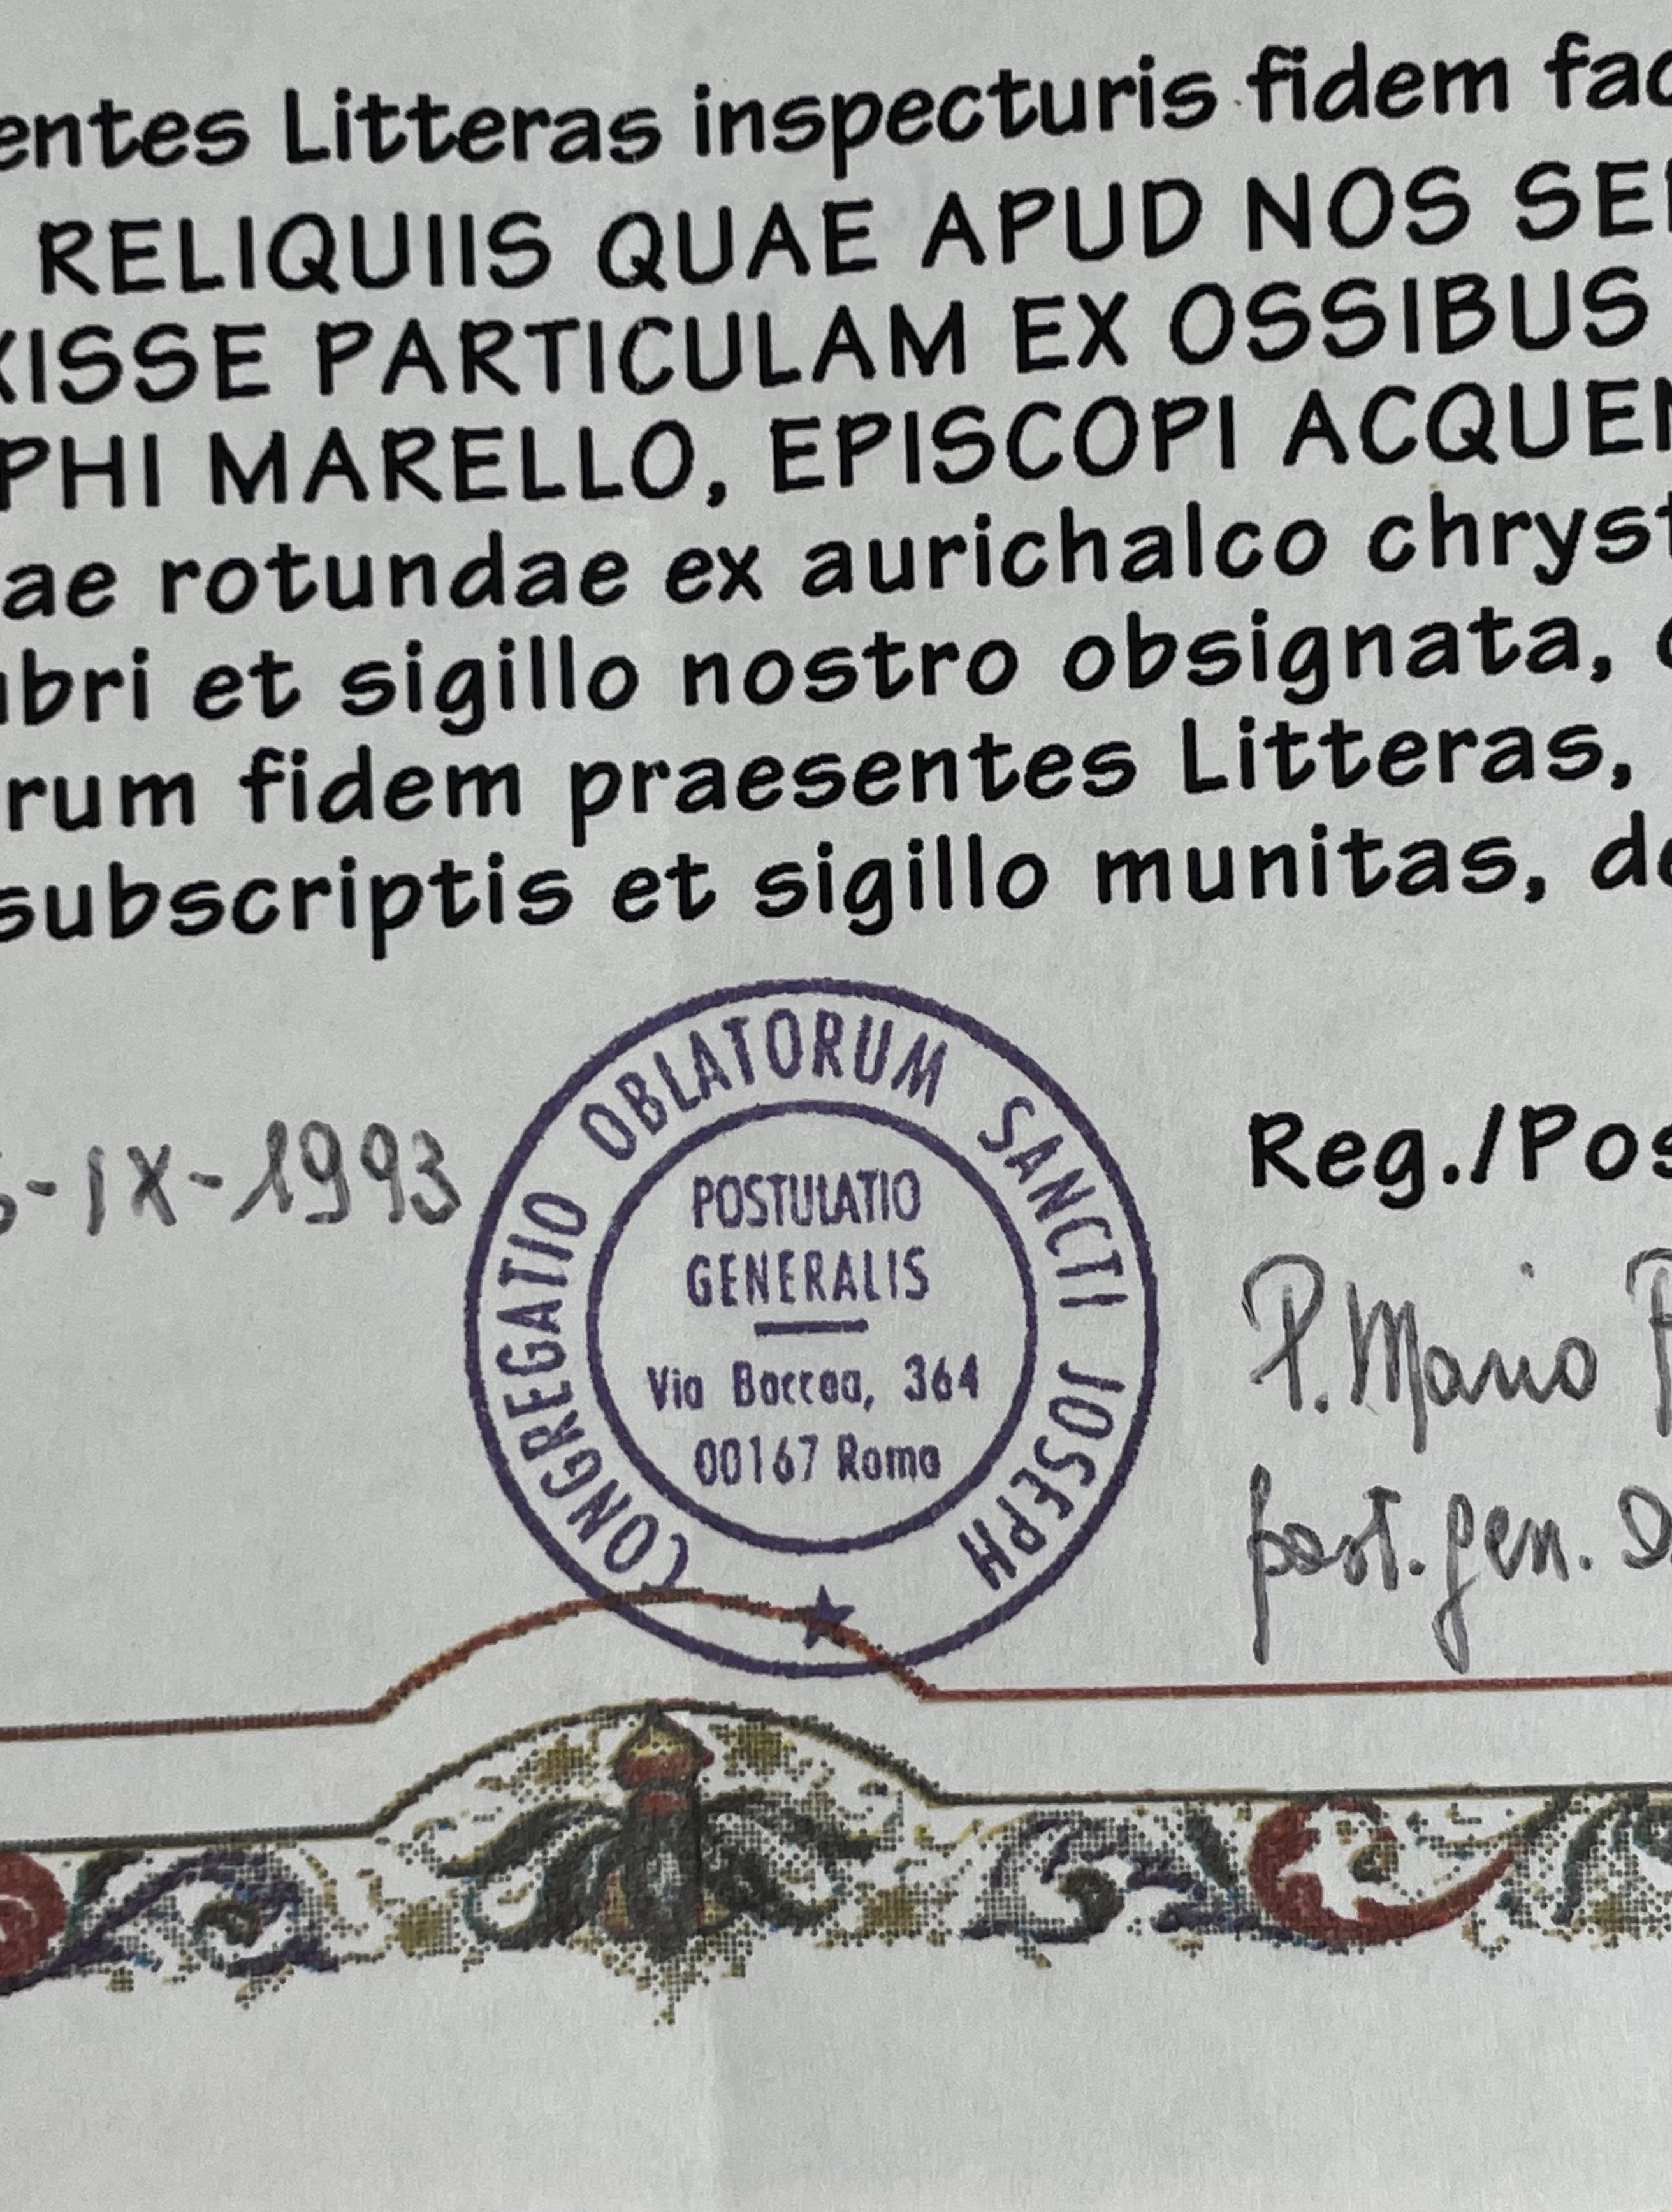 entes Litteras inspecturis fidem fac
RELIQUIIS QUAE APUD NOS SE
XISSE PARTICULAM EX OSSIBUS
PHI MARELLO, EPISCOPI ACQUEN
ae rotundae ex aurichalco chryst
ubri et sigillo nostro obsignata,
rum fidem praesentes Litteras,
subscriptis et sigillo munitas, de
-IX-1993
CONGREGATIO OBLATORUM SANCTI JOSEPH
POSTULATIO
GENERALIS
Via Boccea, 364
00167 Roma
Reg./Pos
P. Mario
post. gen.